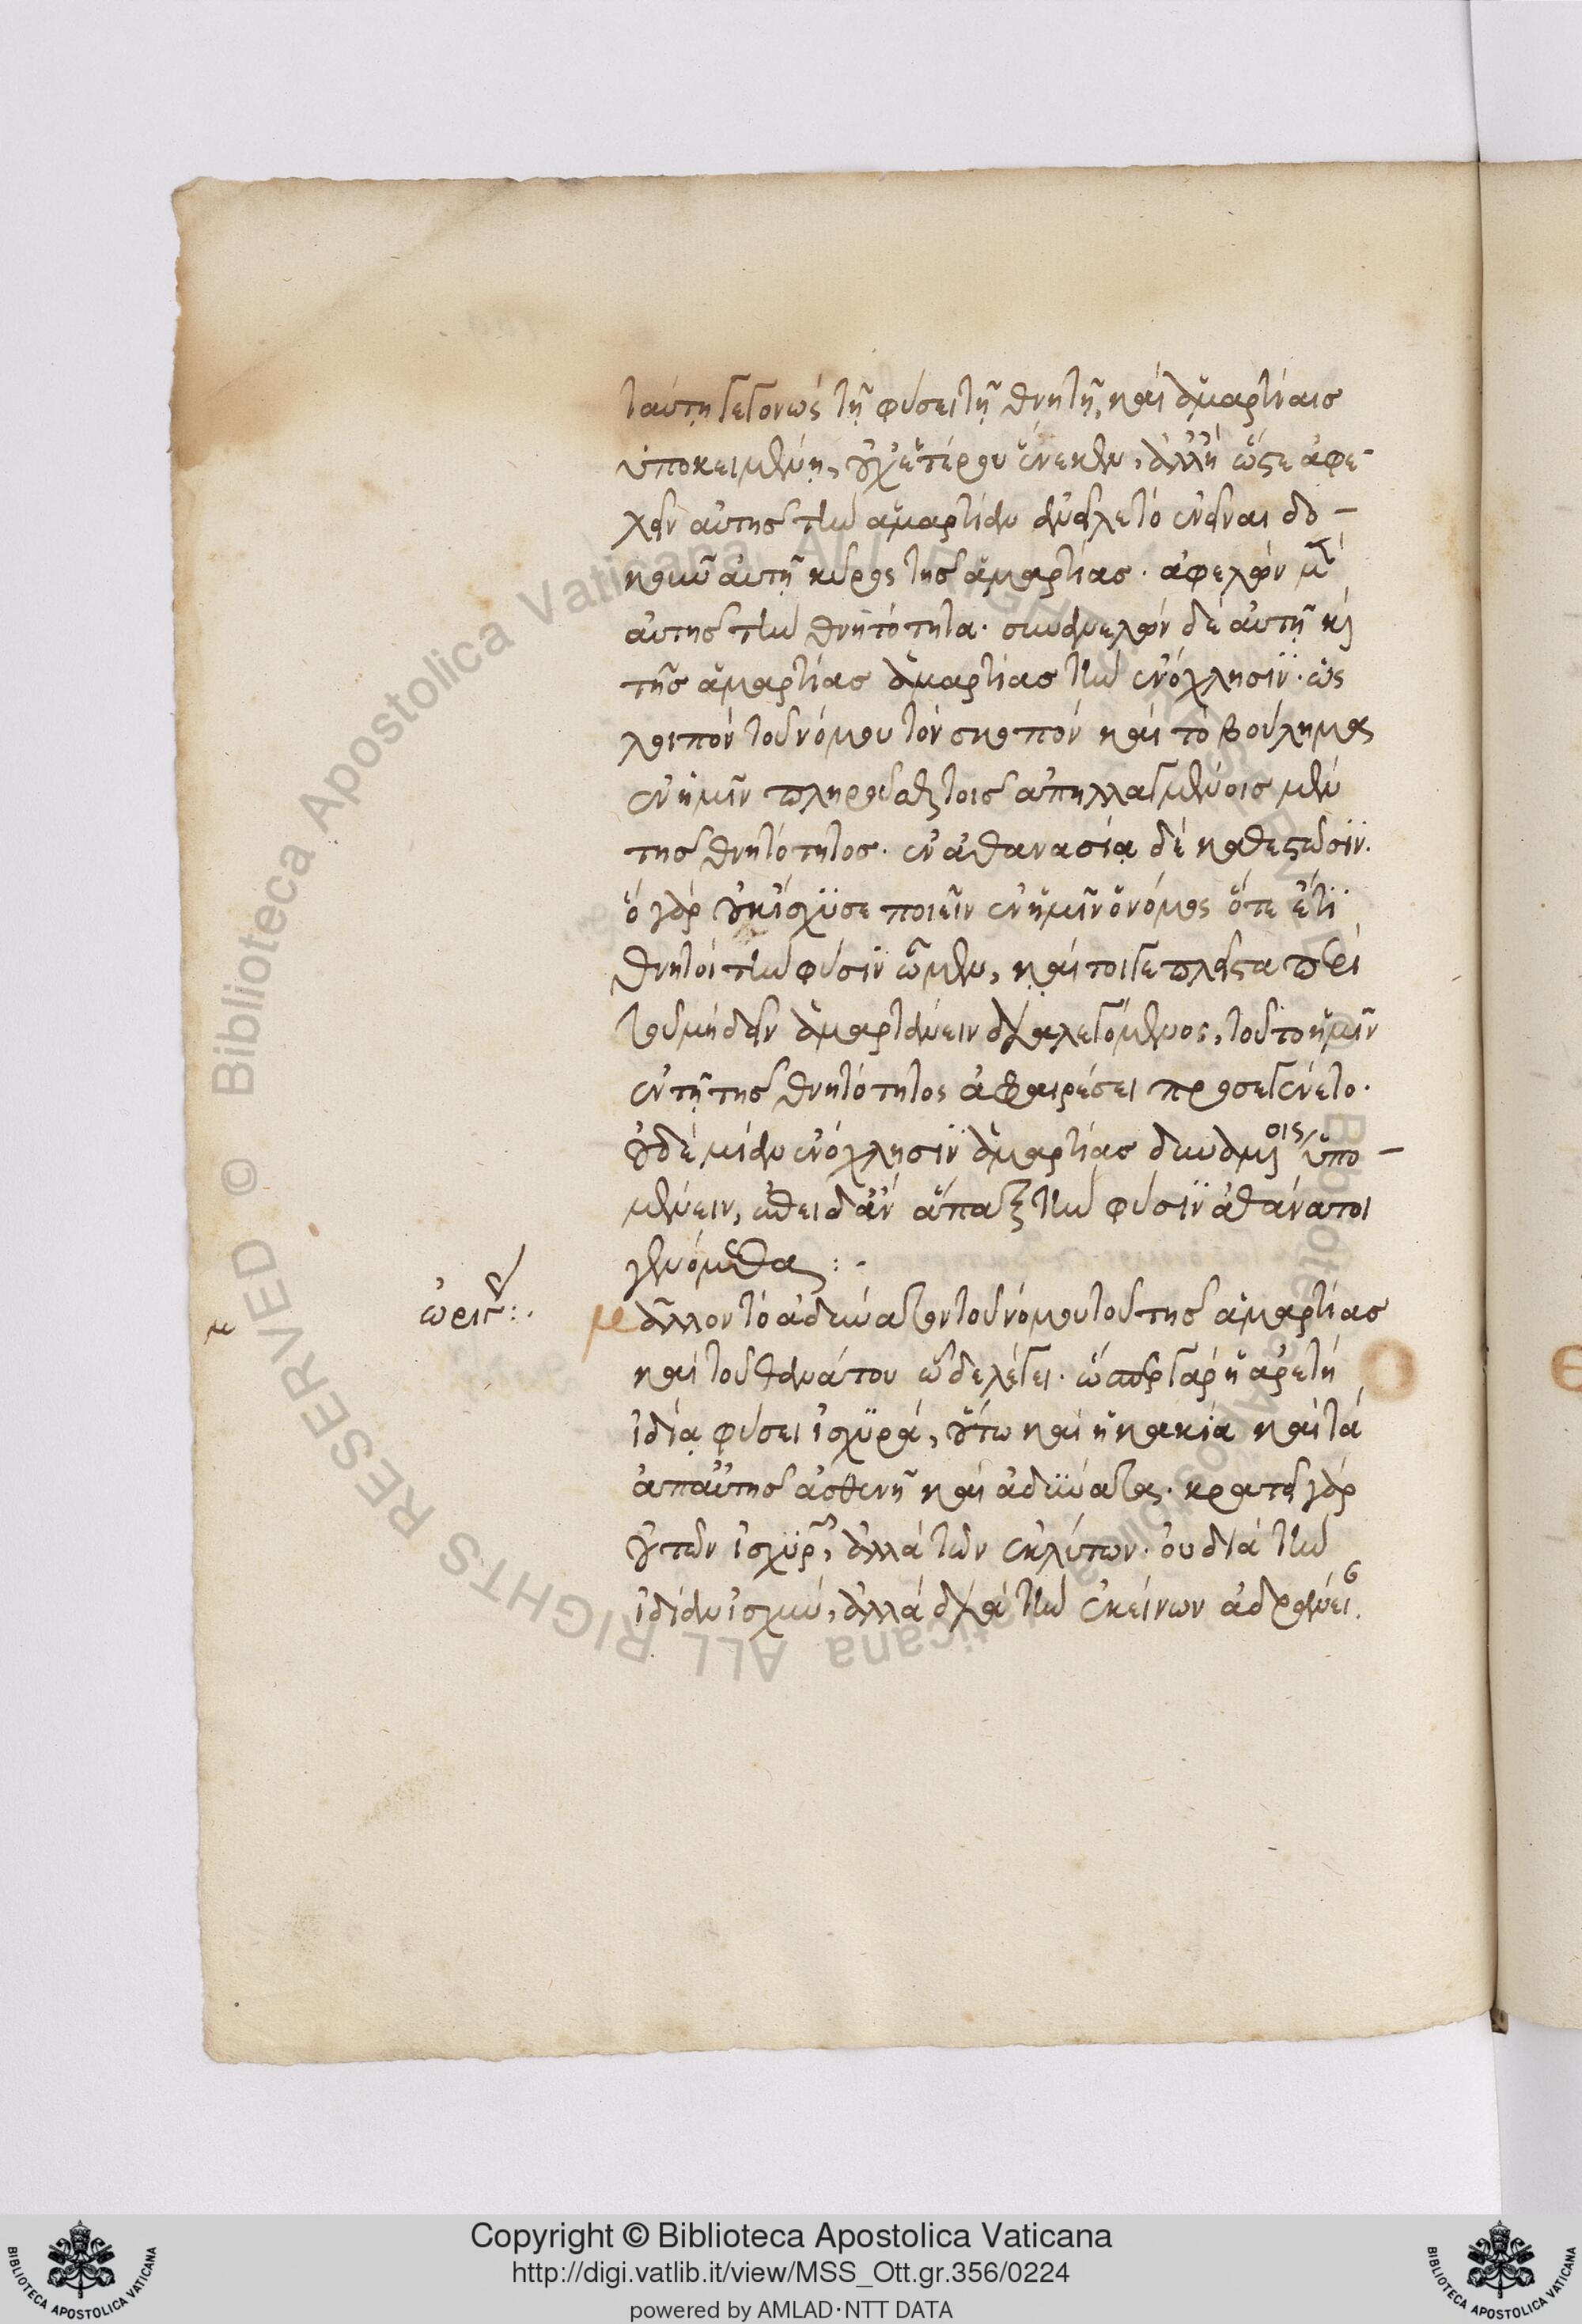 ταύτῃ γεγονὼς τῇ φύσει τῇ θνητῇ, καὶ ἁμαρτίαις
ὑποκειμένῃ, οὐχ ἑτέρου ἕνεκεν, ἀλλ' ἢ ὥστε ἀφε-
λεῖν αὐτῆς τὴν ἁμαρτίαν ἀνεῖλε τὸ ἐνεῖναι δο-
κοῦν αὐτῇ κῦρος τῆς ἁμαρτίας. ἀφελὼν μὲν
αὐτῆς τὴν θνητότητα. συνανελὼν δὲ αὐτῇ καὶ
τῆς ἁμαρτίας ἁμαρτίας τὴν ἐνόχλησιν. ὡς
λοιπὸν τοῦ νόμου τὸν σκοπὸν καὶ τὸ βούλημα
ἐν ἡμῖν πληροῦσθαι τοῖς ἀπηλλαγμένοις μὲν
τῆς θνητότητος. ἐν ἀθανασίᾳ δὲ καθεστῶσιν.
ὃ γὰρ οὐκ ἴσχυσε ποιεῖν ἐν ἡμῖν ὁ νόμος ὅτε ἔτι
θνητοὶ τὴν φύσιν ὦμεν, καίτοιγε πλεῖστα περὶ
τοῦ μηδὲν ἁμαρτάνειν διαλεγόμενος, τοῦτο ἡμῖν
ἐν τῇ τῆς θνητότητος ἀφαιρέσει προσεγένετο.
οὐδεμίαν ἐνόχλησιν ἁμαρτίας δυναμένοις ὑπο-
μένειν, ἐπειδὰν ἅπαξ τὴν φύσιν ἀθάνατοι
γενόμεθα:-
ὠριγ:.
με ἄλλον τὸ ἀδύνατον τοῦ νόμου τοῦ τῆς ἁμαρτίας
καὶ τοῦ θανάτου ὧδε λέγει. ὥσπερ γὰρ ἡ ἀρετὴ
ἰδίᾳ φύσει ἰσχυρά, οὕτω καὶ ἡ κακία καὶ τὰ
ἀπ' αὐτῆς ἀσθενῆ καὶ ἀδύνατα. κρατεῖ γὰρ
οὐ τῶν ἰσχυρῶν, ἀλλὰ τῶν ἐκλύτων. οὐ διὰ τὴν
ἰδίαν ἰσχύν, ἀλλὰ διὰ τὴν ἐκείνων ἀδράνειαν.
Copyright © Biblioteca Apostolica Vaticana
http://digi.vatlib.it/view/MSS_Ott.gr.356/0224
powered by AMLAD·NTT DATA